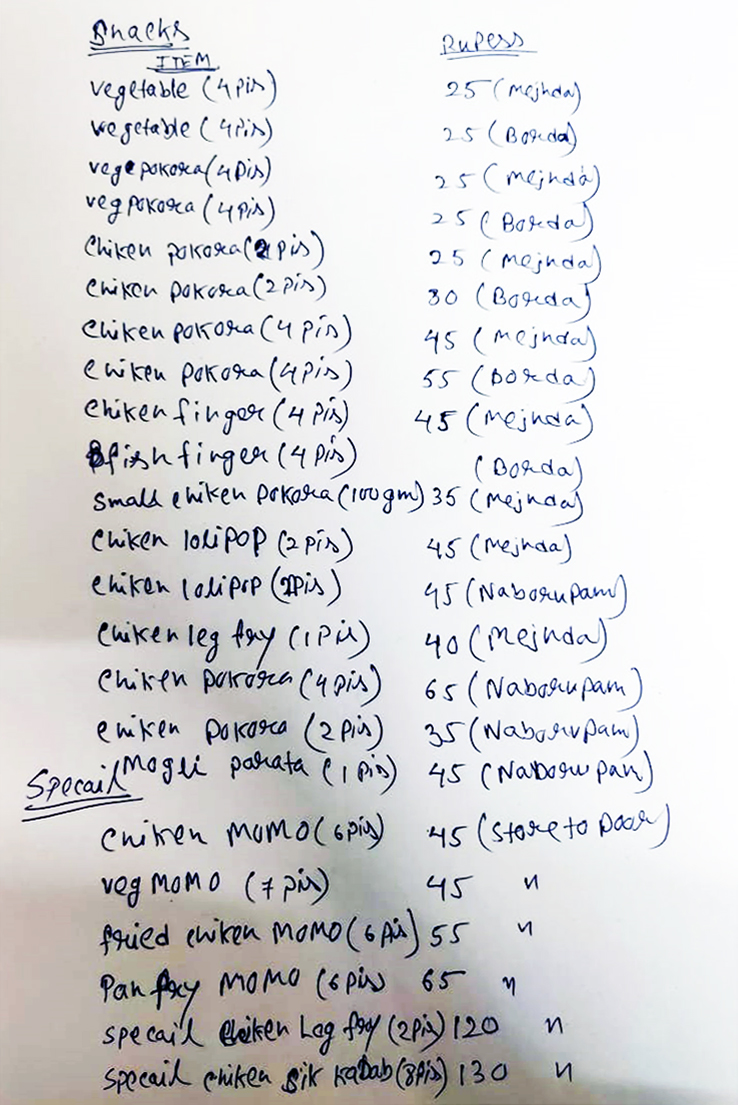 Snacks Rupess
ITEM
vegetable (4 Pis) 25 (Mejhda)
vegetable (4 Pis) 25 (Borda)
vege pokora (4 Pis) 25 (Mejhda)
veg pokora (4 Pis) 25 (Borda)
Chiken pokora (2 Pis) 25 (Mejhda)
Chiken pokora (2 Pis) 30 (Borda)
Chiken pokora (4 Pis) 45 (Mejhda)
Chiken pokora (4 Pis) 55 (Borda)
Chiken finger (4 Pis) 45 (Mejhda)
fish finger (4 Pis) (Borda)
Small chiken pokora (100gm) 35 (Mejhda)
Chiken loliPoP (2 Pis) 45 (Mejhda)
Chiken lolipop (2Pis) 45 (Naborupam)
Chiken leg fry (1 Pis) 40 (Mejhda)
Chiken pokora (4 Pis) 65 (Naborupam)
Chiken pokora (2 Pis) 35 (Naborupam)
Specail Mogli parata (1 Pis) 45 (Naborupam)
Chiken MOMO (6 Pis) 45 (Store to Door)
veg MOMO (7 Pis) 45 "
fried chiken MOMO (6 Pis) 55 "
Pan fry MOMO (6 Pis) 65 "
specail Chiken Lag fry (2Pis) 120 "
specail chiken sik kabab (8Pis) 130 "